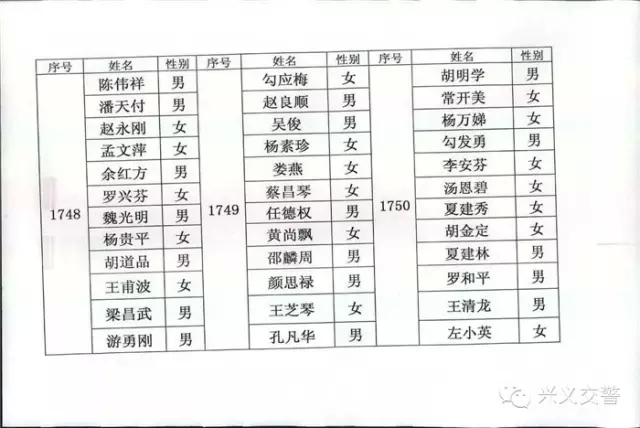 序号 姓名 性别 序号 姓名 性别 序号 姓名 性别
陈伟祥 男 勾应梅 女 胡明学 男
潘天付 男 赵良顺 男 常开美 女
赵永刚 女 吴俊 男 杨万娣 女
孟文萍 女 杨素珍 女 勾发勇 男
余红方 男 娄燕 女 李安芬 女
罗兴芬 女 蔡昌琴 女 汤恩碧 女
1748 魏光明 男 1749 任德权 男 1750 夏建秀 女
杨贵平 女 黄尚飘 女 胡金定 女
胡道品 男 邵麟周 男 夏建林 男
王甫波 女 颜思禄 男 罗和平 男
梁昌武 男 王芝琴 女 王清龙 男
游勇刚 男 孔凡华 男 左小英 女
兴义交警